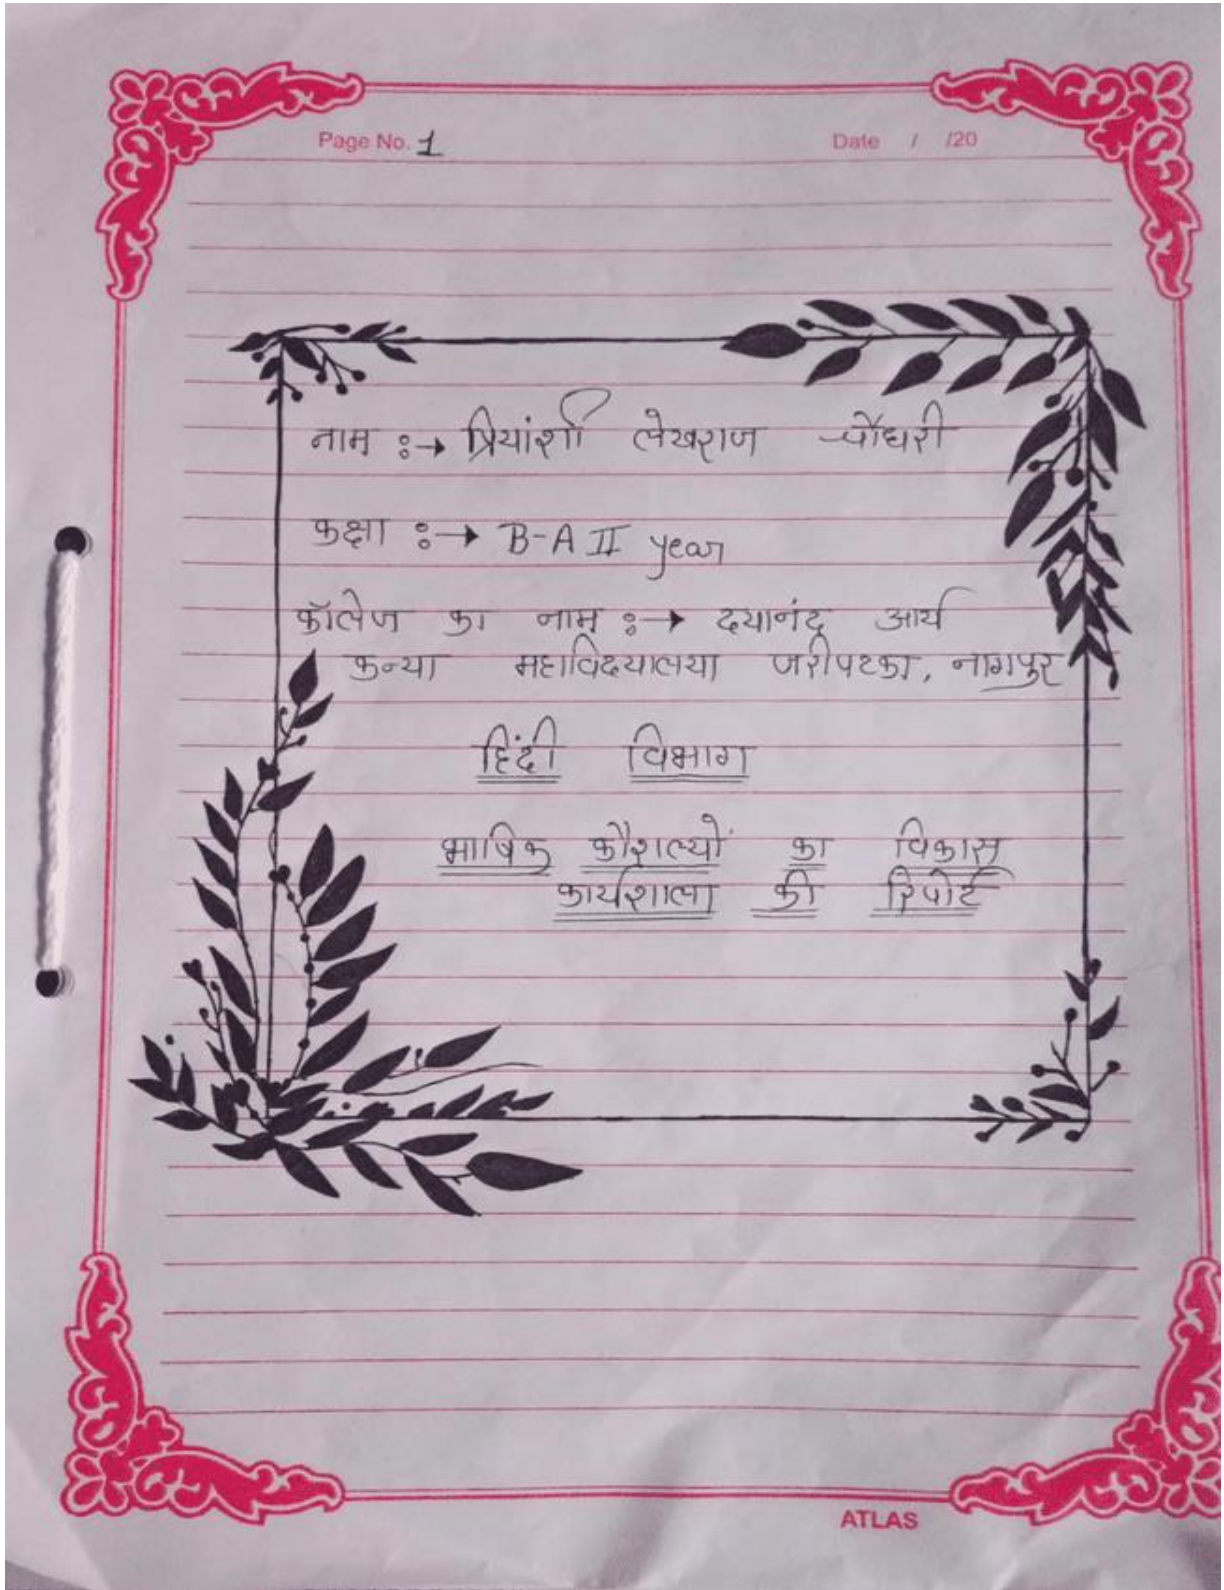 Page No. 1 Date / /20
नाम :→ प्रियांशी लेखराज चौधरी
कक्षा :→ B-A II year
कॉलेज का नाम :→ दयानंद आर्य
कन्या महाविदयालया जरीपटका, नागपुर
हिंदी विभाग
भाषिक कौशल्यों का विकास
कार्यशाला की रिपोर्ट
ATLAS